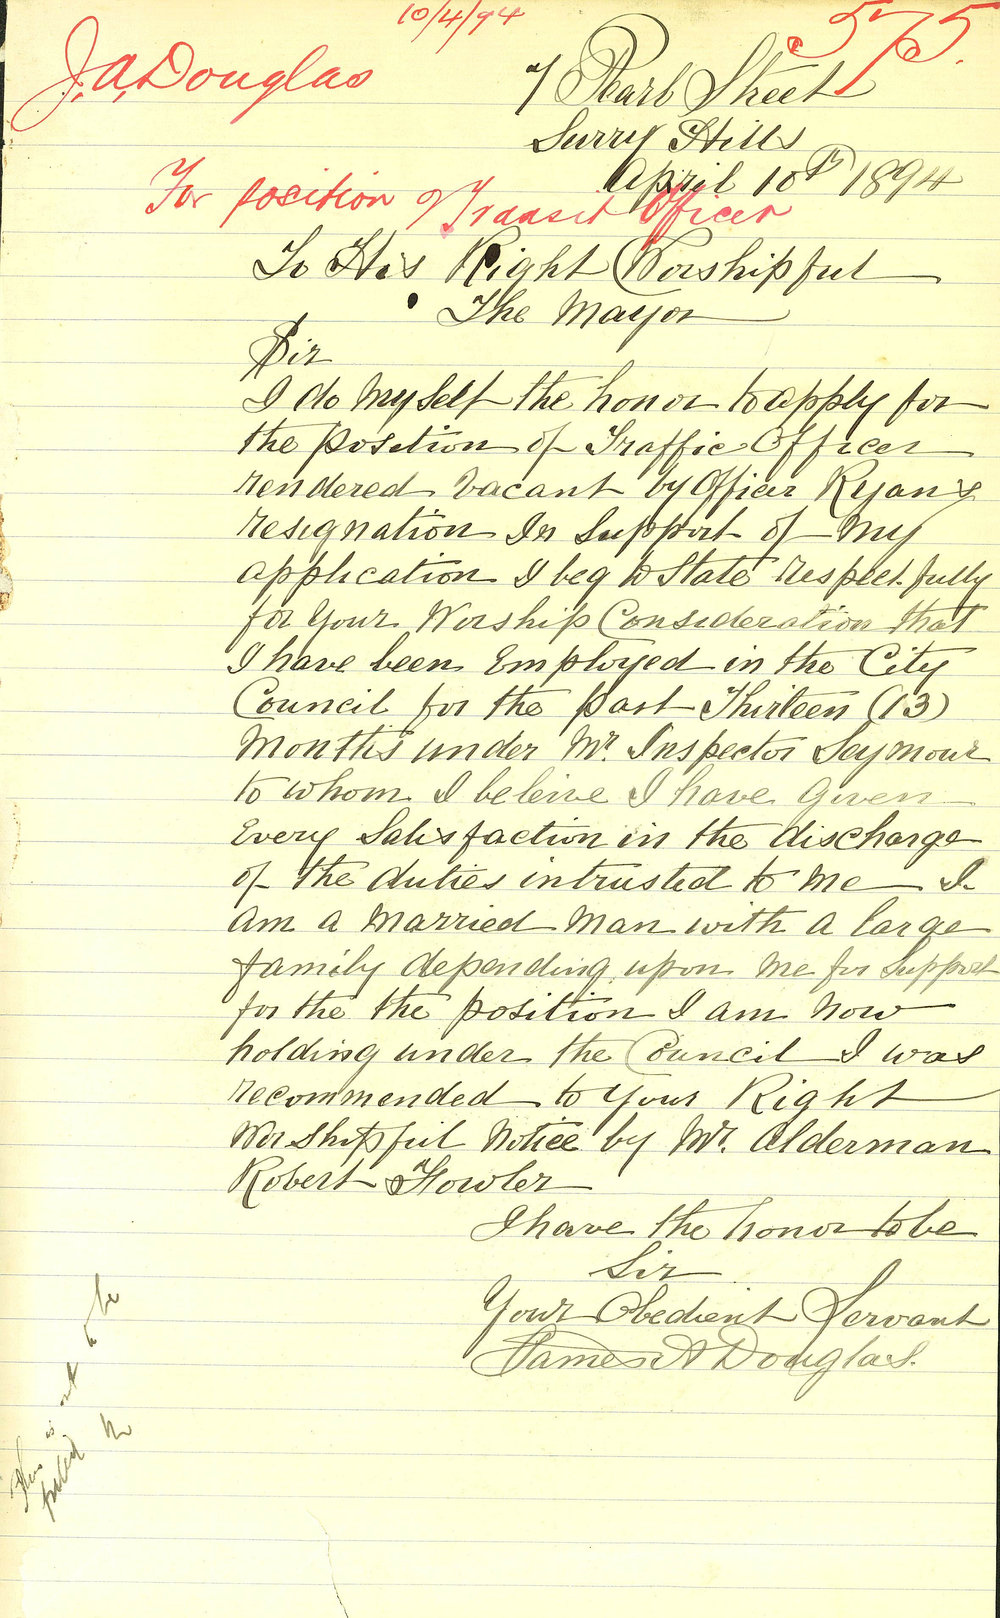 10/4/94
575.
J. A. Douglas
7 Pearl Street
Surry Hills
April 10th 1894
For position of Transit Officer
To His Right Worshipful
The Mayor
Sir
I do Myself the honor to apply for
the Position of Traffic Officer
rendered Vacant by Officer Ryan's
resignation In Support of My
application I beg to State respectfully
for Your Worship Consideration that
I have been Employed in the City
Council for the past Thirteen (13)
Months under Mr. Inspector Seymour
to whom I beleive I have given
Every Satisfaction in the discharge
of the duties intrusted to Me I
Am a Married Man with a large
family depending upon Me for Support
for the the position I am Now
holding under the Council I was
recommended to Your Right
Worshipful Notice by Mr. Alderman
Robert Fowler
I have the honor to be
Sir
Your Obedient Servant
James A Douglas.
This is not to be